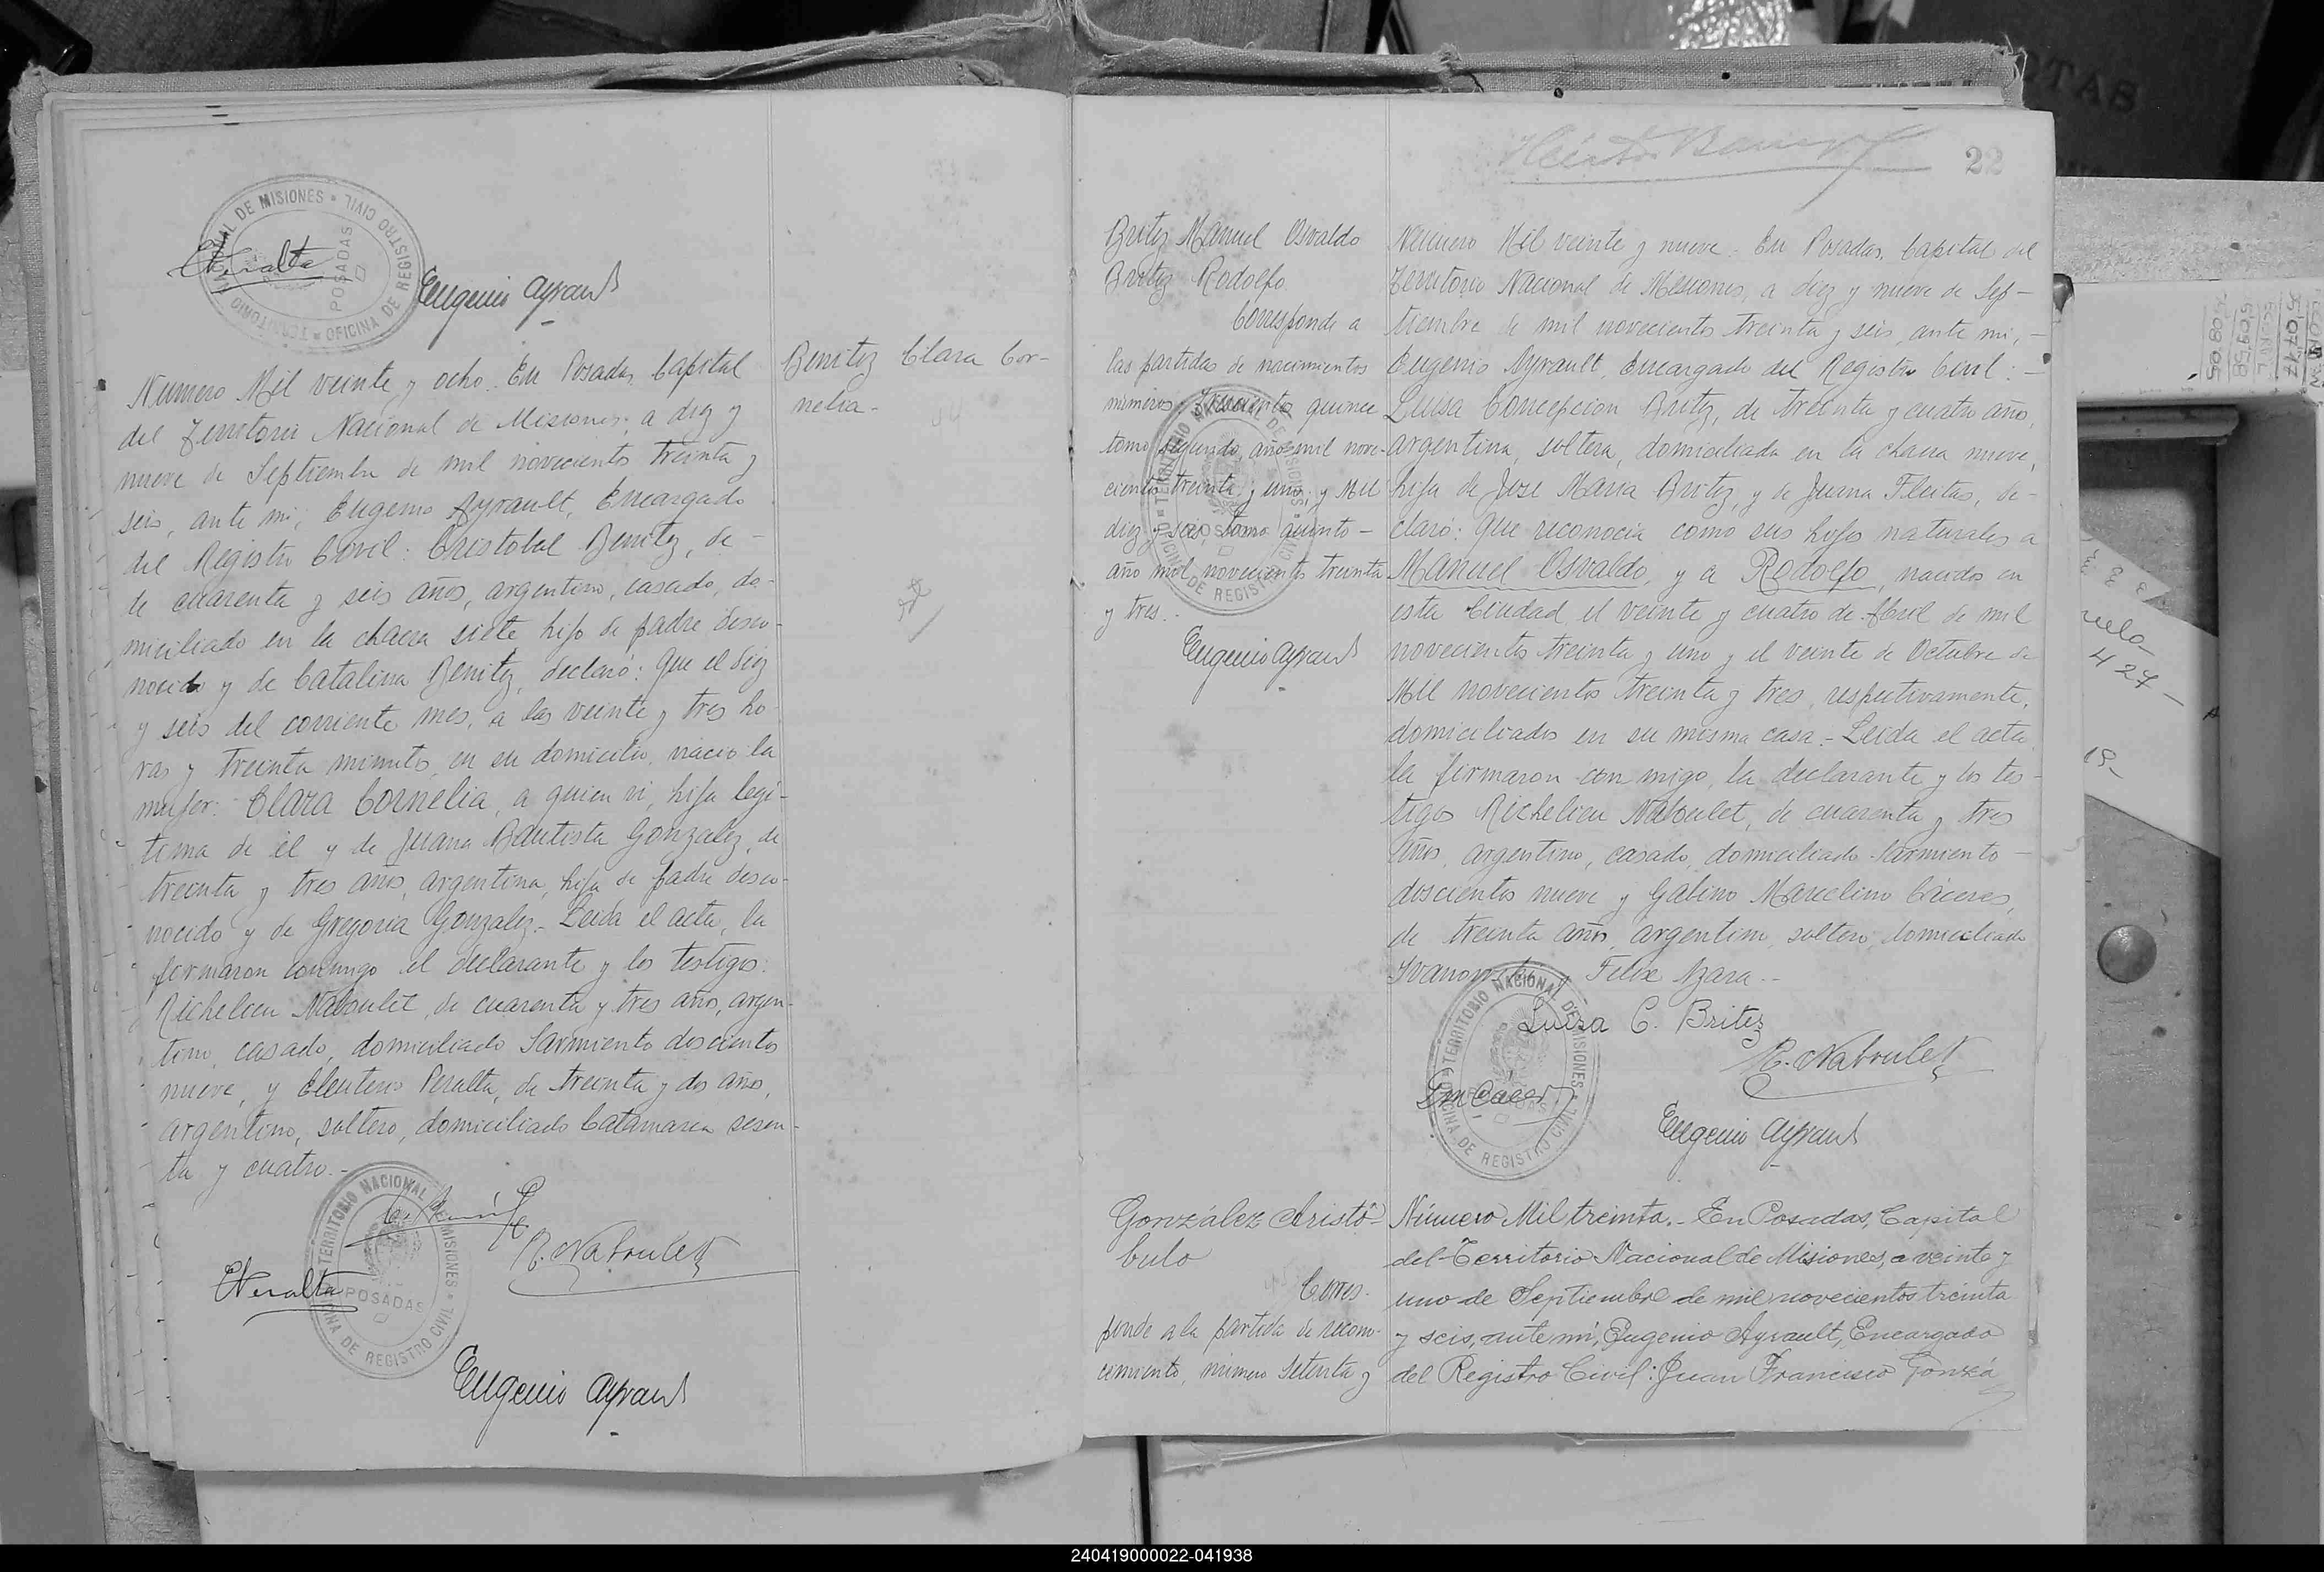 TERRITORIO NACIONAL DE MISIONES
OFICINA DE REGISTRO CIVIL
POSADAS
EPeralta
Eugenio Ayrault
Benitez Clara Cor-
nelia.-
Numero Mil veinte y ocho. En Posadas, Capital
del Territorio Nacional de Misiones, a diez y
nueve de Septiembre de mil novecientos treinta y
seis, ante mi, Eugenio Ayrault, Encargado
del Registro Civil: Cristobal Benitez, de -
de cuarenta y seis años, argentino, casado, do-
miciliado en la chacra siete hijo de padre desco-
nocido y de Catalina Benitez, declaró: Que el diez
y seis del corriente mes, a las veinte y tres ho-
ras y treinta minutos, en su domicilio, nació la
mujer: Clara Cornelia, a quien vi, hija legi-
tima de él y de Juana Bautista Gonzalez, de
treinta y tres años, argentina, hija de padre desco-
nocido y de Gregoria Gonzalez.- Leida el acta, la
firmaron conmigo el declarante y los testigos:
Richelieu Naboulet, de cuarenta y tres años, argen-
tino, casado, domiciliado Sarmiento doscientos
nueve, y Eleuterio Peralta, de treinta y dos años,
argentino, soltero, domiciliado Catamarca sesen-
ta y cuatro.-
R. Naboulet
EPeralta
TERRITORIO NACIONAL DE MISIONES
OFICINA DE REGISTRO CIVIL
POSADAS
Eugenio Ayrault
22
Britez Manuel Osvaldo
Britez Rodolfo
Corresponde a
las partidas de nacimientos
números: quince
tomo segundo, año mil nove-
cientos treinta y uno; y Mil
diez y seis, tomo quinto -
año mil novecientos treinta
y tres.-
Eugenio Ayrault
TERRITORIO NACIONAL DE MISIONES
OFICINA DE REGISTRO CIVIL
Número Mil veinte y nueve. En Posadas, Capital del
Territorio Nacional de Misiones, a diez y nueve de Sep-
tiembre de mil novecientos treinta y seis, ante mi, -
Eugenio Ayrault, Encargado del Registro Civil: -
Luisa Concepcion Britez, de treinta y cuatro años,
argentina, soltera, domiciliada en la chacra nueve,
hija de José Maria Britez, y de Juana Fleitas, de-
claró: Que reconocia como sus hijos naturales a
Manuel Osvaldo, y a Rodolfo, nacidos en
esta Ciudad, el veinte y cuatro de Abril de mil
novecientos treinta y uno y el veinte de Octubre de
Mil novecientos treinta y tres, respectivamente,
domiciliados en su misma casa.- Leida el acta
la firmaron con migo, la declarante y los tes-
tigos Richelieu Naboulet, de cuarenta y tres
años, argentino, casado, domiciliado Sarmiento -
doscientos nueve y Gabino Marcelino Cáceres,
de treinta años, argentino, soltero, domiciliado
y Felix Azara.-
Luisa C. Britez
R. Naboulet
Eugenio Ayrault
TERRITORIO NACIONAL DE MISIONES
OFICINA DE REGISTRO CIVIL
González Aristó-
bulo
Corres-
ponde a la partida de recono-
cimiento, número setenta y
Número Mil treinta.- En Posadas, Capital
del Territorio Nacional de Misiones, a veinte y
uno de Septiembre de mil novecientos treinta
y seis, ante mí, Eugenio Ayrault, Encargado
del Registro Civil: Juan Francisco Gonzá
240419000022-041938